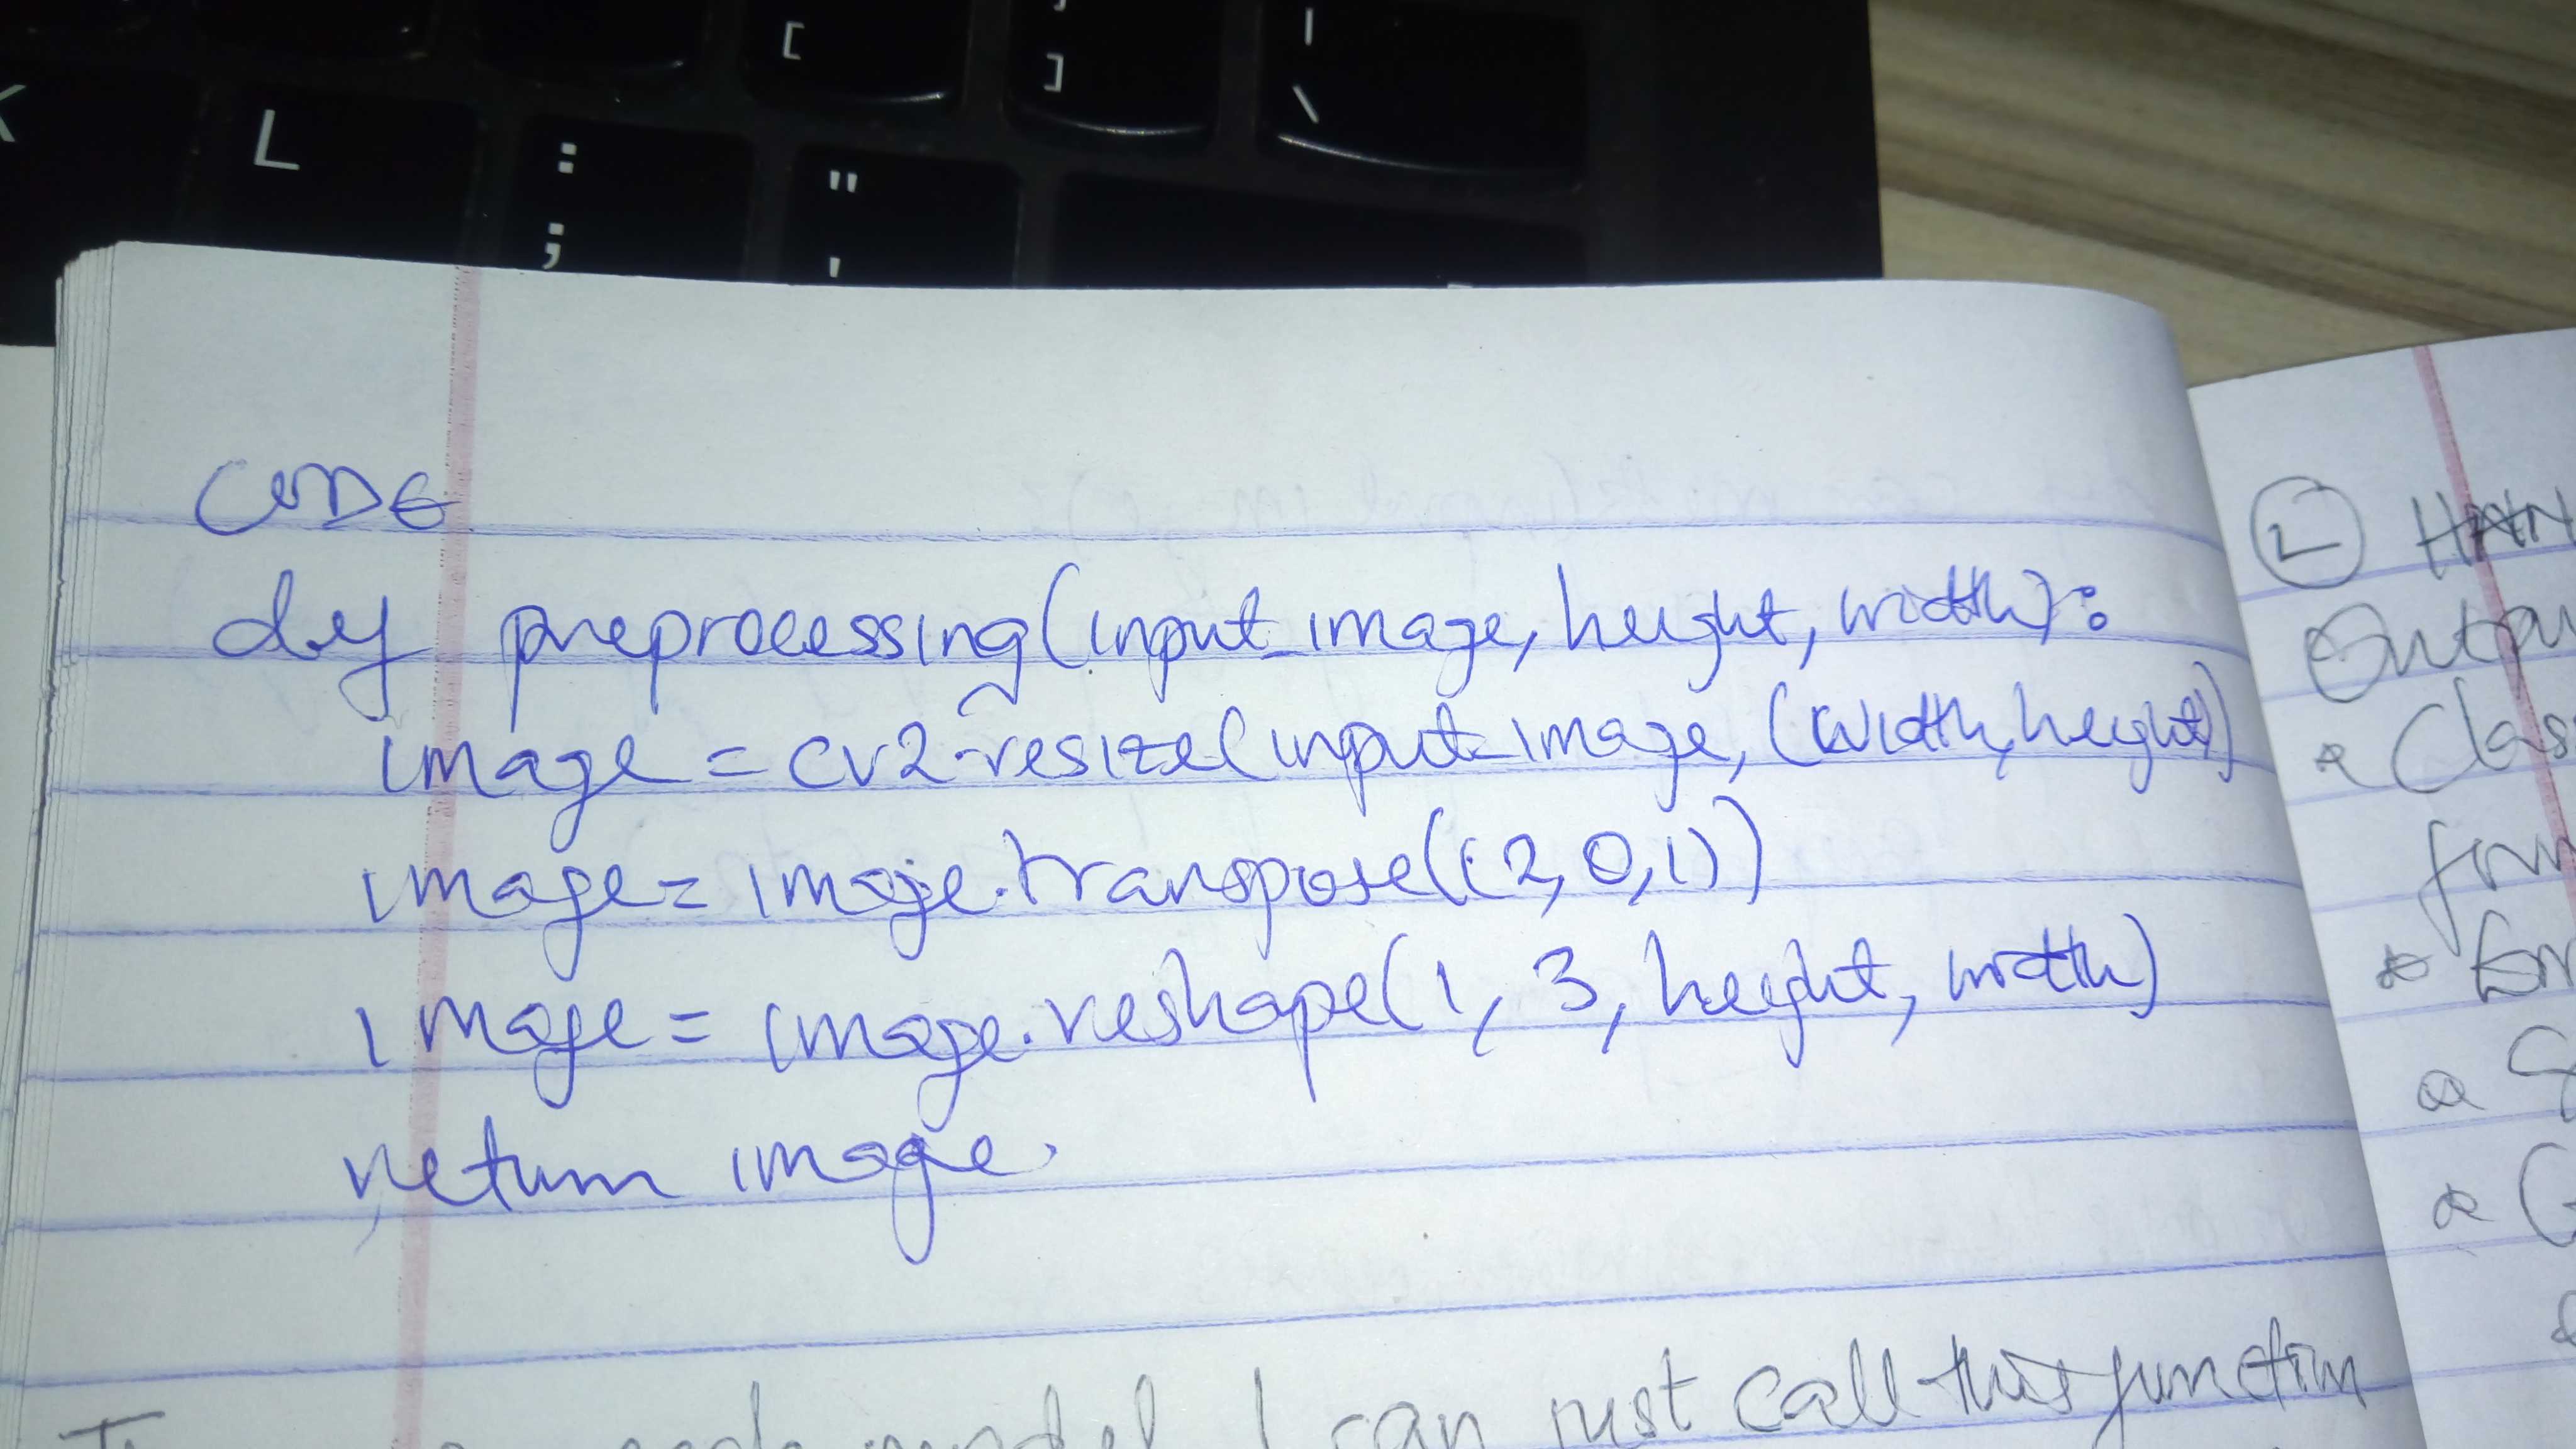 [
]
|
\
K
L
:
;
"
'
CODE
def preprocessing(input_image, height, width):
image = cv2.resize(input_image, (width, height))
image = image.transpose((2,0,1))
image = image.reshape(1, 3, height, width)
return image.
model I can just call this function
2